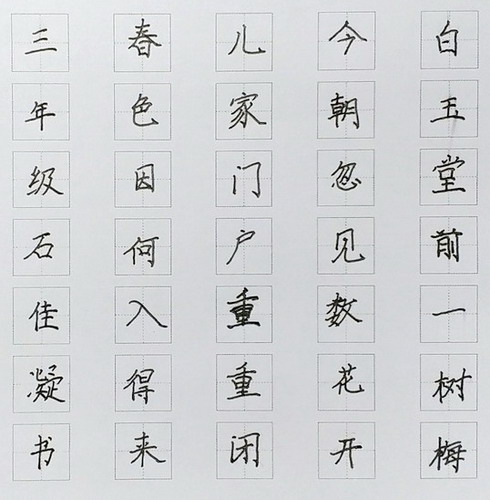 白玉堂前一树梅
今朝忽见数花开
儿家门户重重闭
春色因何入得来
三年级石佳凝书